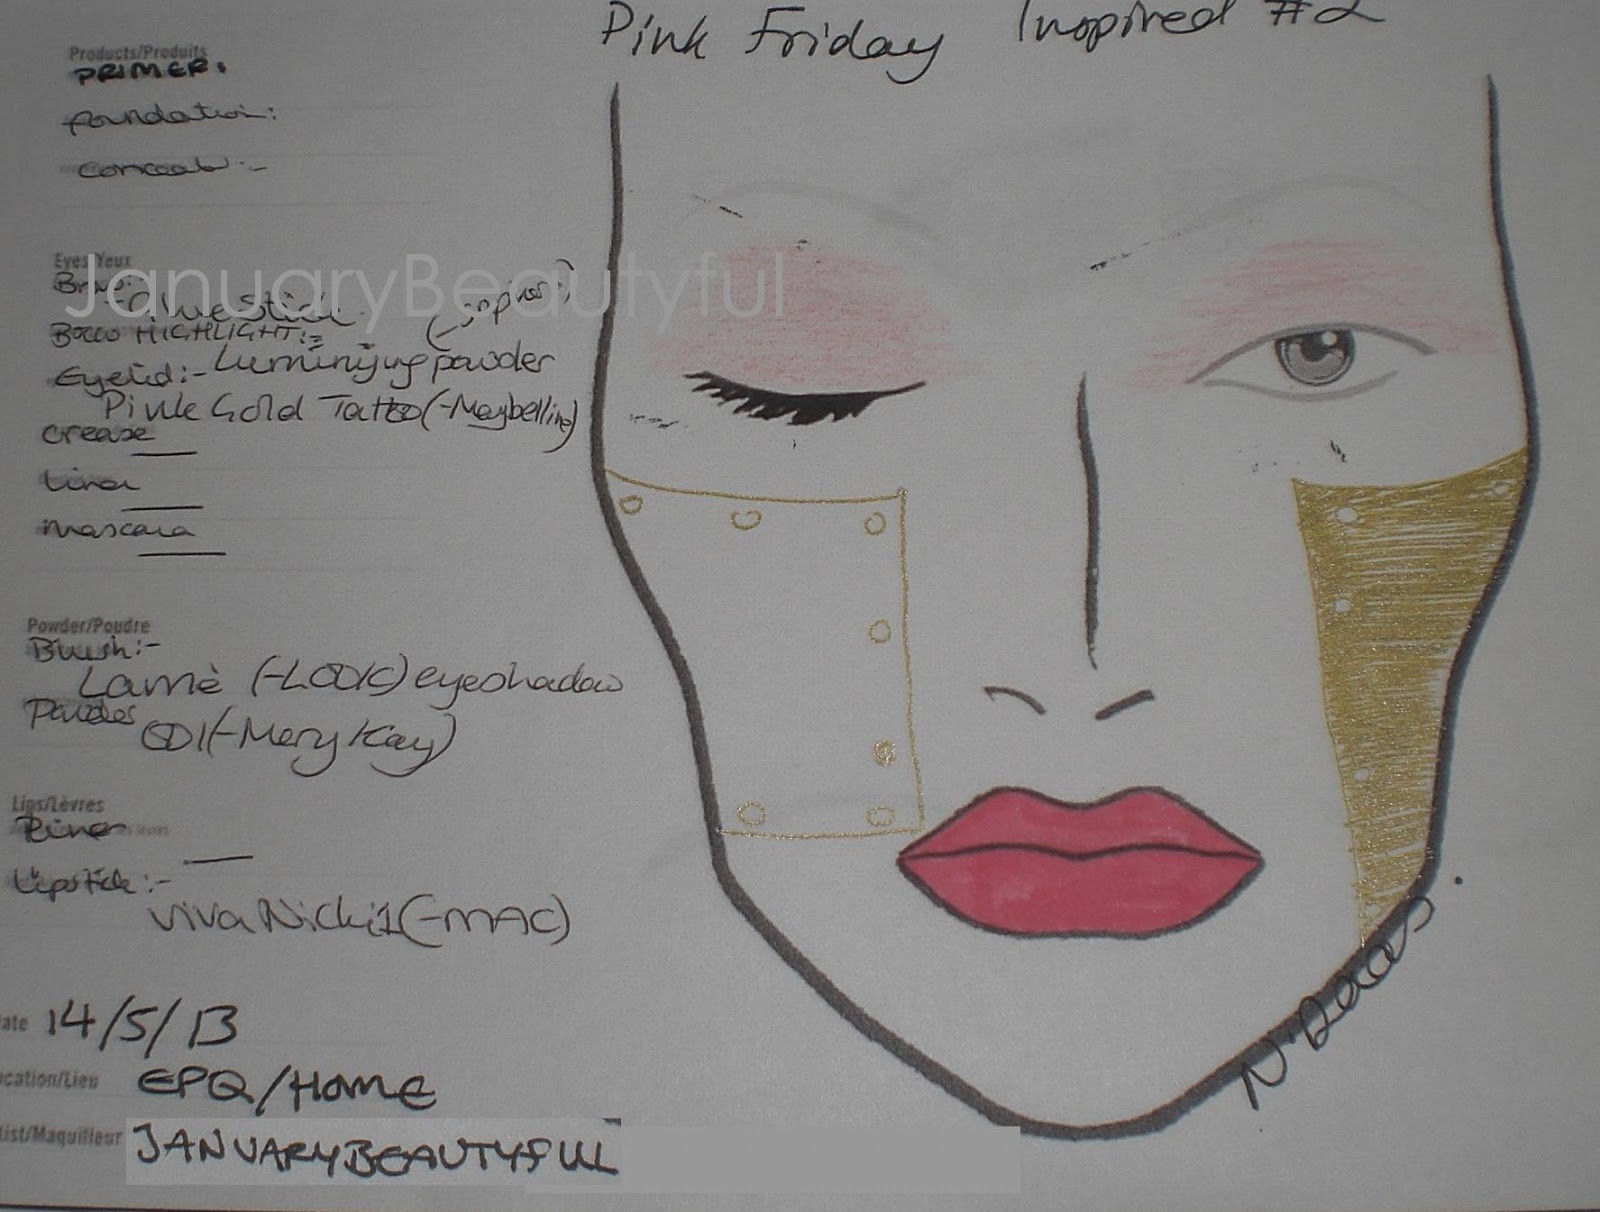 Pink Friday Inspired #2
Products/Produits
PRIMER:
foundation:
JanuaryBeautyful
Eyes/Yeux
Brow:
Glue Stick
HIGHLIGHT:-
Eyelid:- Luminizing powder
Pink Gold Tattoo (-Maybelline)
crease
Liner
mascara
Powder/Poudre
Blush:-
Lamè (-LOOK) eyeshadow
Powder
(-Mary Kay)
Lips/Lèvres
Liner
Lipstick:-
Viva Nicki 1 (-MAC)
ate 14/5/13
ocation/Lieu EPQ/HOME
tist/Maquilleur JANUARYBEAUTYFUL